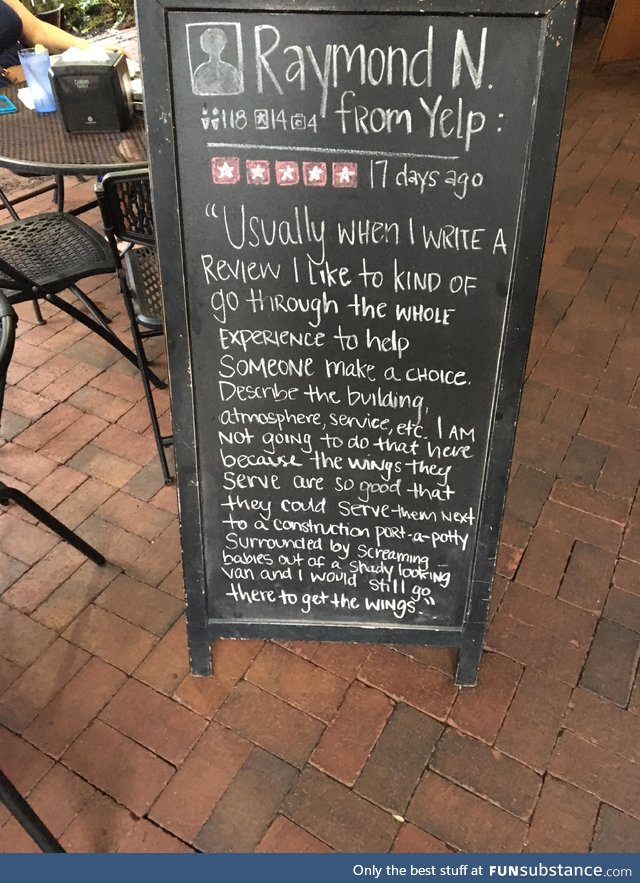 Raymond N.
118 14 4 from Yelp:
17 days ago
"Usually when I write a
Review I like to kind of
go through the whole
experience to help
someone make a choice.
Describe the building,
atmosphere, service, etc. I am
not going to do that here
because the wings they
serve are so good that
they could serve them next
to a construction port-a-potty
surrounded by screaming
babies out of a shady looking
van and I would still go
there to get the wings"
Only the best stuff at FUNsubstance.com